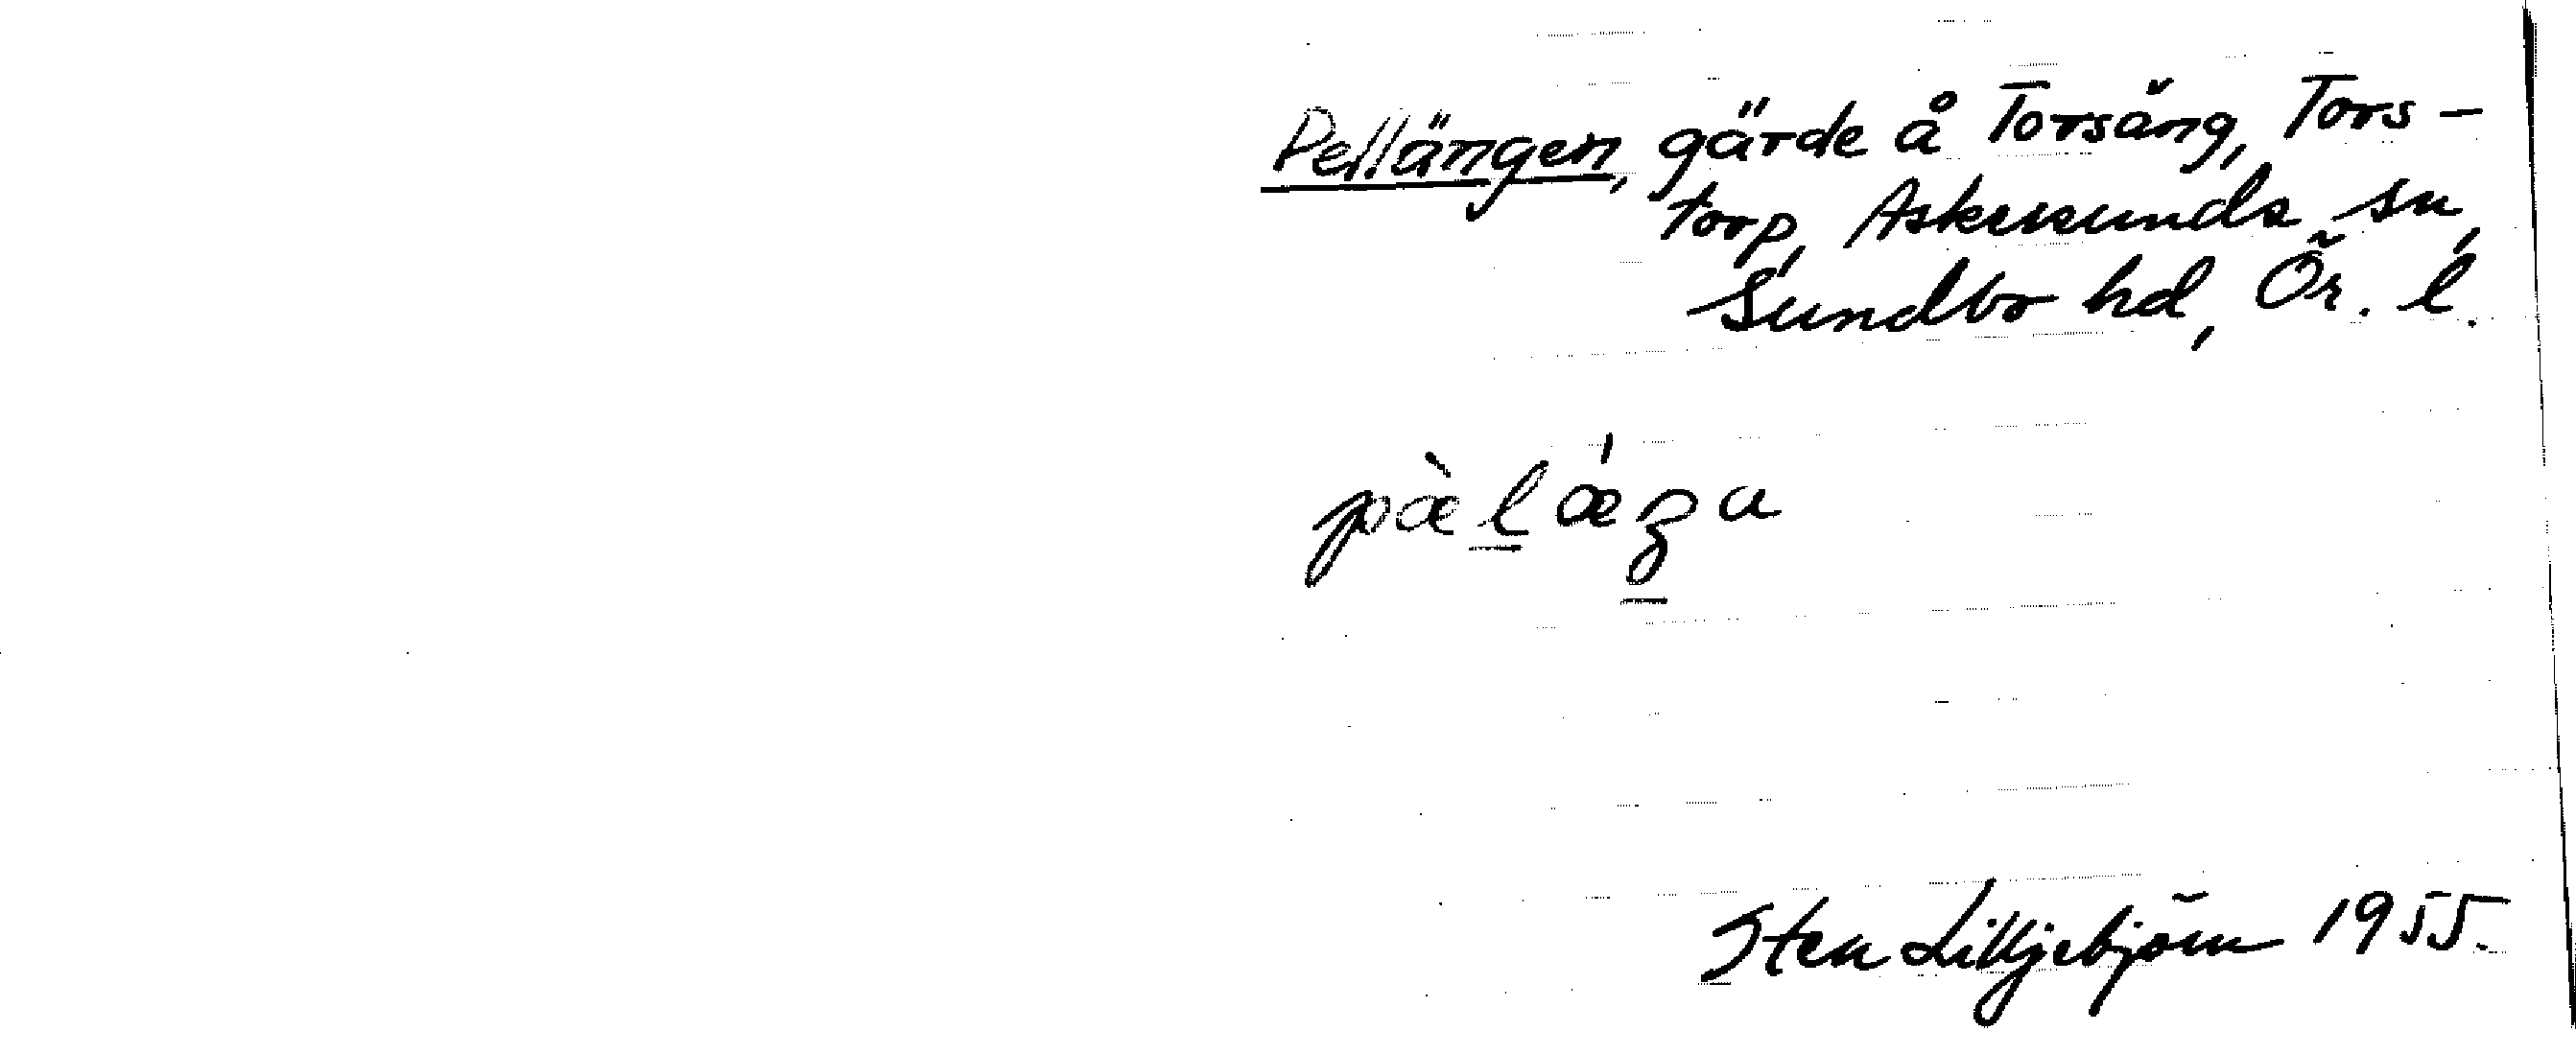 Pellängen, gärde å Torsäng, Tors-
torp, Askersunds sn,
Sundbo hd, Ör. l.
pæ̀l̲ǽʒ̲a
Sten Lilljebjörn 1955.